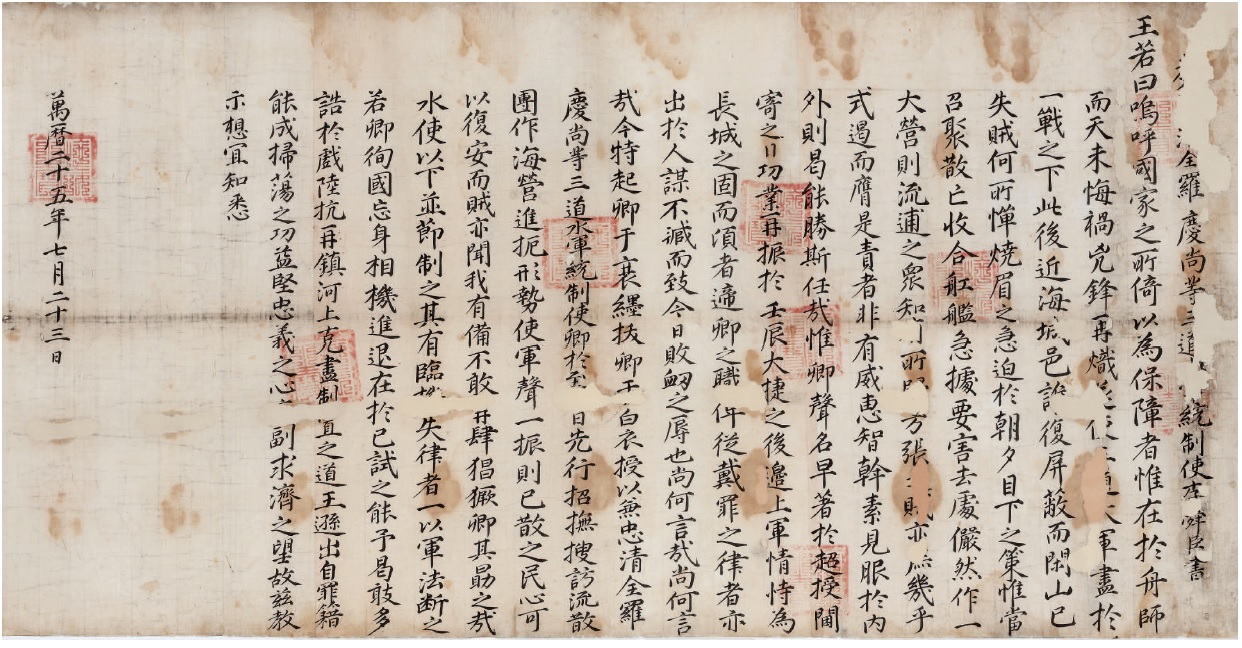 全羅慶尚等三道統制使李舜臣書
王若曰嗚呼國家之所倚以為保障者惟在於舟師
而天未悔禍兇鋒再熾軍盡於
一戰之下此後近海城邑誰復屏蔽而閑山已
失賊何所憚燒眉之急迫於朝夕目下之策惟當
召聚散亡收合舡艦急據要害去處儼然作一
大營則流逋之衆知所方張賊亦幾乎
式遏而膺是責者非有威惠智幹素見服於內
外則曷能勝斯任哉惟卿聲名早著於超授閫
寄之日功業再振於壬辰大捷之後邊上軍情恃為
長城之固而頃者遞卿之職俾從戴罪之律者亦
出於人謀不臧而致今日敗衂之辱也尚何言哉尚何言
哉今特起卿于衰絰拔卿于白衣授以兼忠清全羅
慶尚等三道水軍統制使卿於至日先行招撫搜訪流散
團作海營進扼形勢使軍聲一振則已散之民心可
以復安而賊亦聞我有備不敢再肆猖獗卿其勗之哉
水使以下並節制之其有臨失律者一以軍法断之
若卿徇國忘身相機進退在於已試之能予曷敢多
誥於戲陸抗再鎮河上克盡制置之道王遜出自罪籍
能成掃蕩之功益堅忠義之心副求濟之望故玆教
示想宜知悉
萬曆二十五年七月二十三日